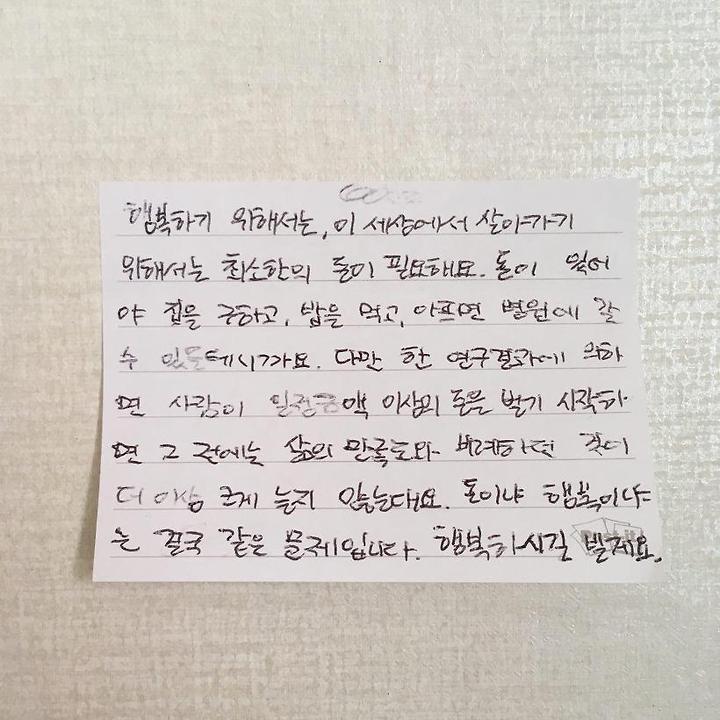 행복하기 위해서는, 이 세상에서 살아가기
위해서는 최소한의 돈이 필요해요. 돈이 있어
야 집을 구하고, 밥을 먹고, 아프면 병원에 갈
수 있을테니까요. 다만 한 연구결과에 의하
면 사람이 일정금액 이상의 돈을 벌기 시작하
면 그 전에는 삶의 만족도와 비례하던 것이
더 이상 크게 늘지 않는대요. 돈이냐 행복이냐
는 결국 같은 문제입니다. 행복하시길 빌게요.